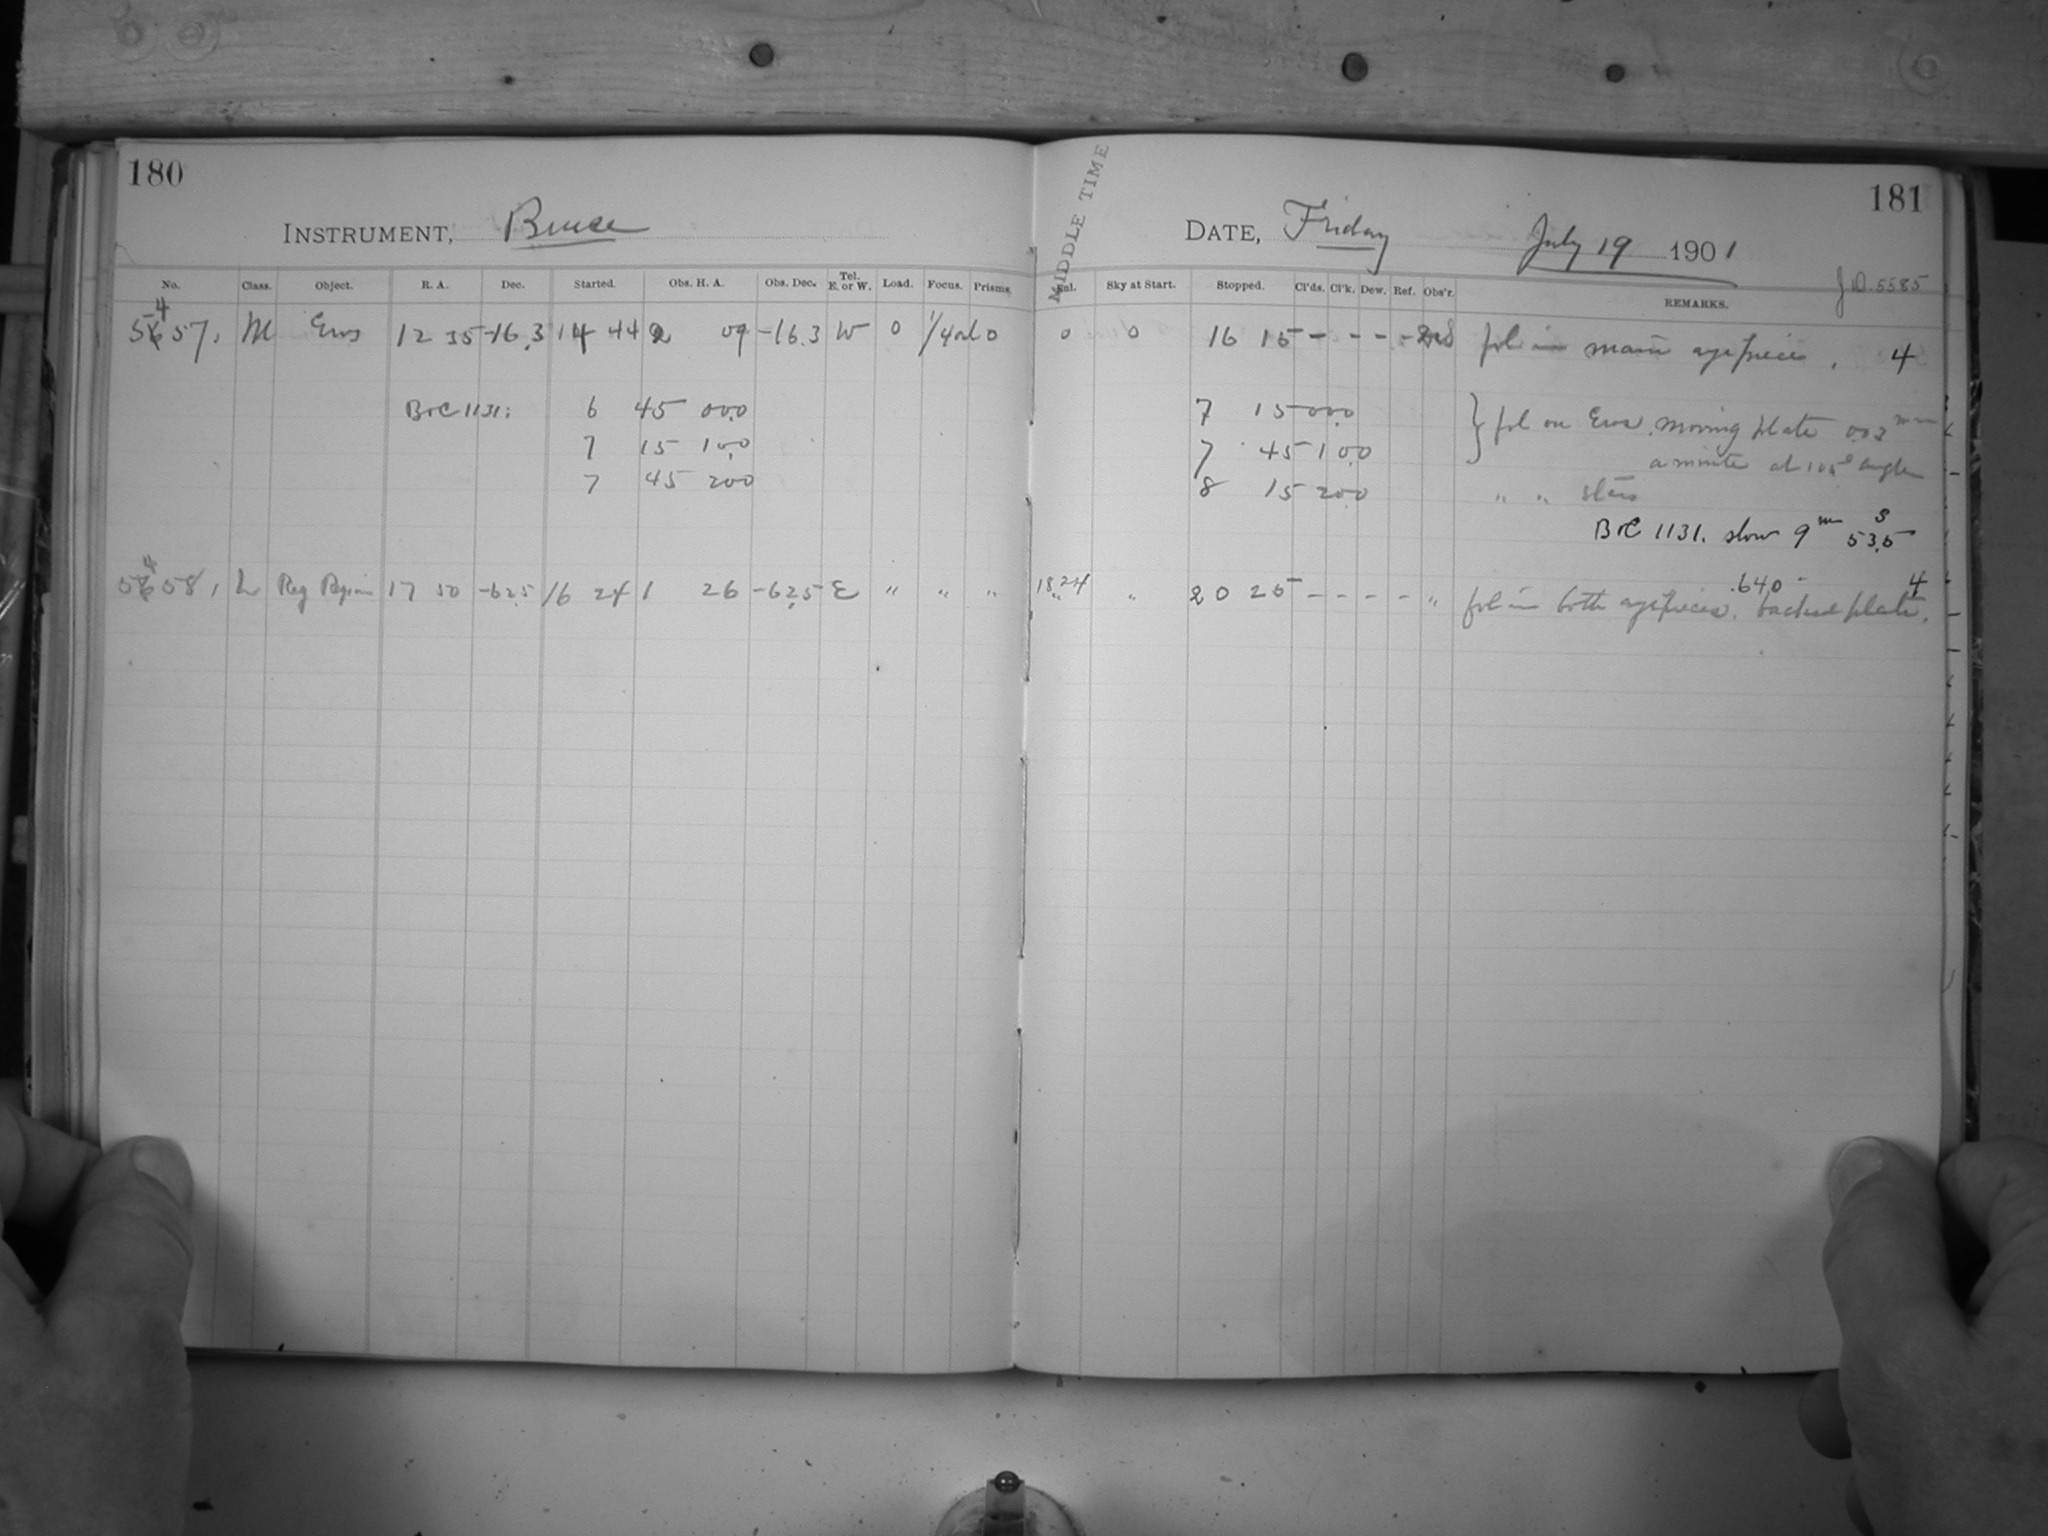 180
INSTRUMENT, Bruce
MIDDLE TIME
DATE, Friday July 19 1901
181
J.D. 5585
No. Class. Object. R. A. Dec. Started. Obs. H. A. Obs. Dec. Tel. E. or W. Load. Focus. Prisms. Enl. Sky at Start. Stopped. Cl'ds. Cl'k. Dew. Ref. Obs'r. REMARKS.
4
5657, M Eros 12 35 -16.3 14 44 2 09 -16.3 W 0 0 0 0 16 15 - - - - fol in main eyepiece, 4
B+C 1131: 6 45 00.0 7 15 00.0 } fol on Eros, moving plate 0.03 mm
7 15 10.0 7 45 10.0 a minute at angle
7 45 20.0 8 15 20.0 " " stars
B+C 1131. slow 9m 53.5s
4
5658, L Reg Region 17 50 -62.5 16 24 1 26 -62.5 E " " " 18 24 " " 20 25 - - - - " fol in both eyepieces. backed plate. .640 4